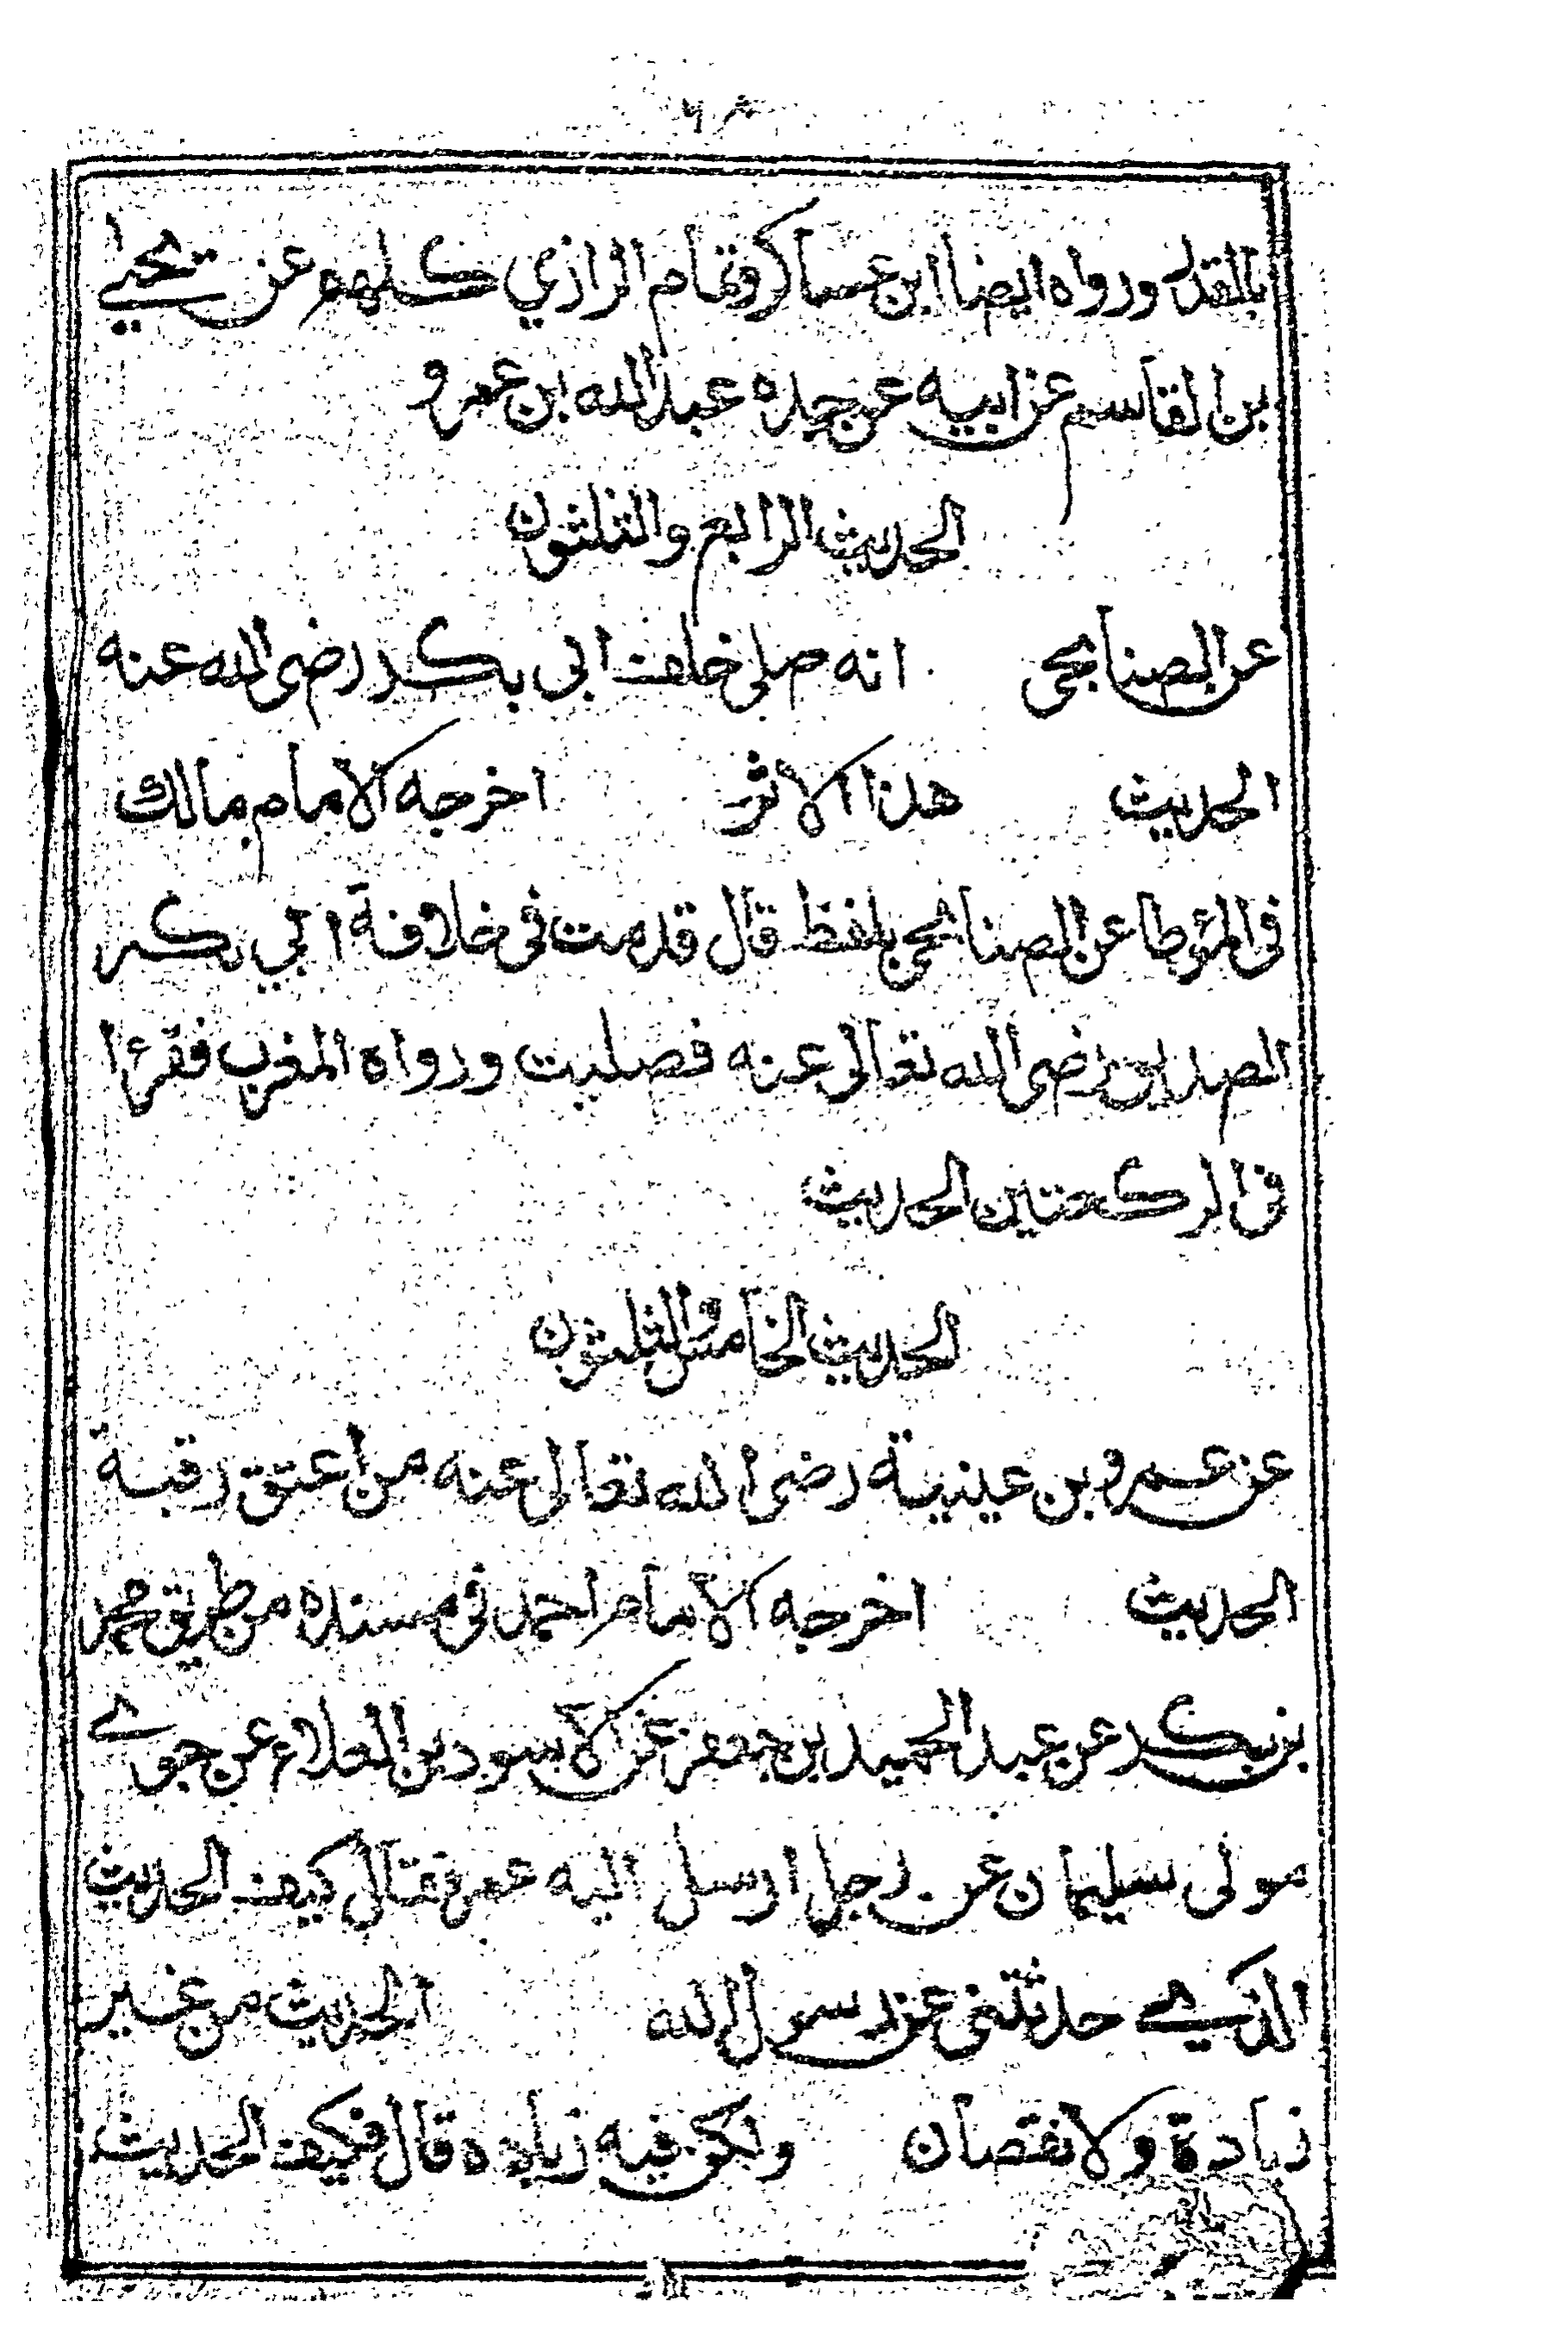 بالقدر ورواه ايضا ابن عساكر وتمام الرازي كلهم عن يحيى
بن القاسم عن ابيه عن جده عبد الله ابن عمرو
الحديث الرابع والثلثون
عن الصنابحى انه صلى خلف ابى بكر رضى الله عنه
الحديث هذا الاثر اخرجه الامام مالك
فى المؤطا عن الصنابحى بلفظ قال قدمت فى خلافة ابي بكر
الصديق رضى الله تعالى عنه فصليت ورواه المغرب فقرئ
فى الركعتين الحديث
الحديث الخامس والثلثون
عن عمرو بن عينيية رضى الله تعالى عنه من اعتق رقبة
الحديث اخرجه الامام احمد فى مسنده من طريق محمد
بن بكر عن عبد الحميد ابن جعفر عن الاسود بن العلاء عن جوے
مولى سليمان عن رجل ارسل اليه عمر فقال كيف الحديث
الذي حدثتنى عن رسول الله الحديث من غير
زيادة ولا نقصان ولكن فيه زياده قال فكيف الحديث